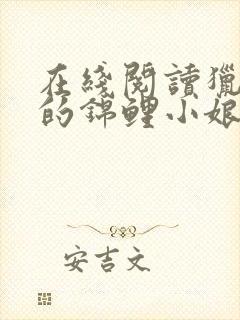 在綫閱讀獵
的錦鯉小娘
安吉文